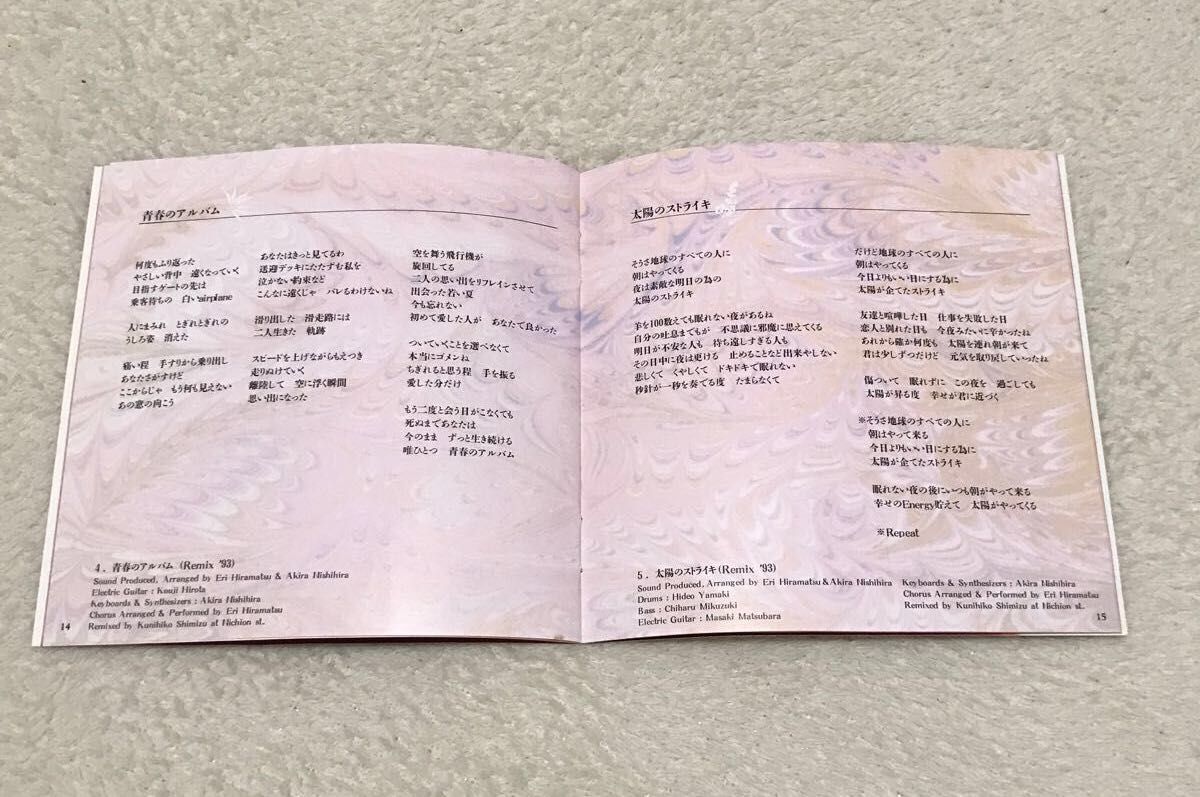 青春のアルバム
何度もふり返った
やさしい背中　遠くなっていく
目指すゲートの先は
乗客待ちの　白いairplane
人にまみれ　とぎれとぎれの
うしろ姿　消えた
痛い程　手すりから乗り出し
あなたさがすけど
ここからじゃ　もう何も見えない
あの窓の向こう
あなたはきっと見てるわ
送迎デッキにたたずむ私を
泣かない約束など
こんなに遠くじゃ　バレるわけないね
滑り出した　滑走路には
二人生きた　軌跡
スピードを上げながらもえつき
走りぬけていく
離陸して　空に浮く瞬間
思い出になった
空を舞う飛行機が
旋回してる
二人の思い出をリフレインさせて
出会った若い夏
今も忘れない
初めて愛した人が　あなたで良かった
ついていくことを選べなくて
本当にゴメンね
ちぎれると思う程　手を振る
愛した分だけ
もう二度と会う日がこなくても
死ぬまであなたは
今のまま　ずっと生き続ける
唯ひとつ　青春のアルバム
4．青春のアルバム (Remix '93)
Sound Produced, Arranged by Eri Hiramatsu & Akira Nishihira
Electric Guitar : Kouji Hirota
Keyboards & Synthesizers : Akira Nishihira
Chorus Arranged & Performed by Eri Hiramatsu
Remixed by Kunihiko Shimizu at Hichion sL.
14
太陽のストライキ
そうさ地球のすべての人に
朝はやってくる
夜は素敵な明日の為の
太陽のストライキ
羊を100数えても眠れない夜があるね
自分の吐息までもが　不思議に邪魔に思えてくる
明日が不安な人も　待ち遠しすぎる人も
その日中に夜は更ける　止めることなど出来やしない
悲しくて　くやしくて　ドキドキで眠れない
秒針が一秒を奏でる度　たまらなくて
だけど地球のすべての人に
朝はやってくる
今日よりもいい日にする為に
太陽が企てたストライキ
友達と喧嘩した日　仕事を失敗した日
恋人と別れた日も　今夜みたいに辛かったね
あれから幾か何度も　太陽を連れ朝が来て
君は少しずつだけど　元気を取り戻していったね
傷ついて　眠れずに　この夜を　過ごしても
太陽が昇る度　幸せが君に近づく
※そうさ地球のすべての人に
朝はやって来る
今日よりもいい日にする為に
太陽が企てたストライキ
眠れない夜の後にいつも朝がやって来る
幸せのEnergy貯えて　太陽がやってくる
※Repeat
5．太陽のストライキ(Remix '93)
Sound Produced, Arranged by Eri Hiramatsu & Akira Nishihira
Drums : Hideo Yamaki
Bass : Chiharu Mikuzuki
Electric Guitar : Masaki Matsubara
Keyboards & Synthesizers : Akira Nishihira
Chorus Arranged & Performed by Eri Hiramatsu
Remixed by Kunihiko Shimizu at Hichion sL.
15